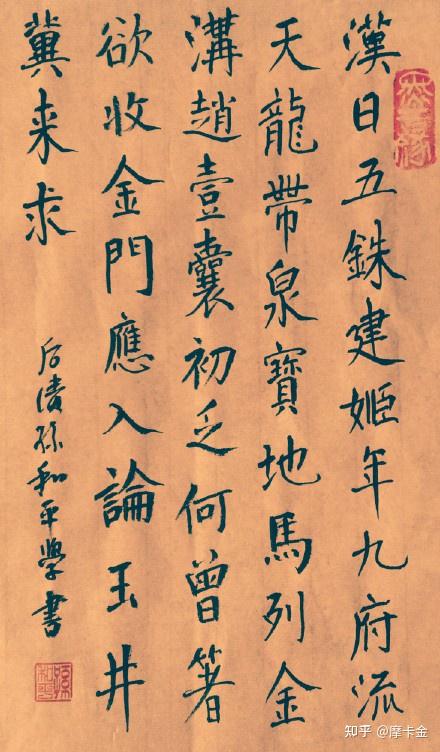 漢日五銖建姬年九府流
天龍帶泉寶地馬列金
溝趙壹囊初乏何曾箸
欲收金門應入論玉井
冀来求
后潰孫和平學書
知乎 @摩卡金